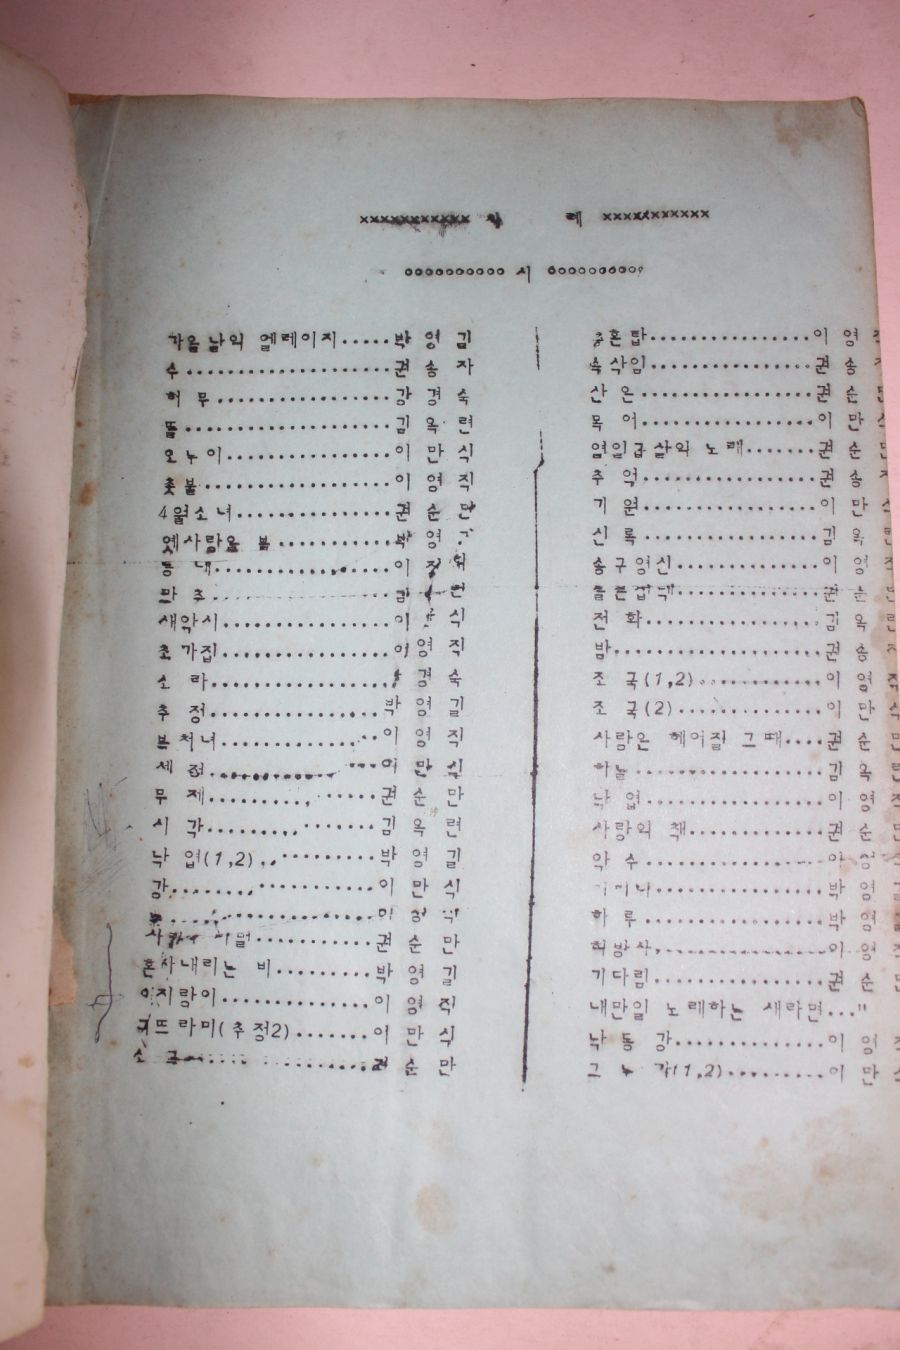 xxxxxxxxxxx 차 레 xxxxxxxxxxx
oooooooooo 시 oooooooooo
가을날의 엘레이지.....박 영 길
수....................권 송 자
허 무.................강 경 숙
돌....................김 옥 련
오누이................이 만 식
촛불..................이 영 직
4월소녀...............권 순 만
옛사랑을 봄...........박 영
동 내.................이
만 추.................김 련
새악시................이 식
초가집................이 영 직
소 라................. 경 숙
추 정.................박 영 길
부처녀................이 영 직
세 전.................이 만 식
무 제.................권 순 만
시 각.................김 옥 련
낙 엽(1,2)............박 영 길
강....................이 만 식
권 순 만
혼사내리는 비.........박 영 길
이 영 직
귀뜨라미(추정2).......이 만 식
소 국.................권 순 만
혼탑................이 영
속삭임................권 송
산 은.................권 순
목 어.................이 만
엽일급살의 노래.......권 순
추 억.................권 송
기 원.................이 만
신 록.................김 옥
송구영신..............이 영
권 순
전 화.................김 옥
밤....................권 송
조 국(1,2)............이 영
조 국(2)..............이 만
사랑은 헤어질 그때....권 순
하늘..................김 옥
낙 엽.................이 영
사랑의 책.............권 순
약 수.................이
박 영
하 루.................박 영
허방사................이 영
기다림................권 순
내만일 노래하는 새라면..."
낙 동 강..............이 영
그 누 가(1,2).........이 만